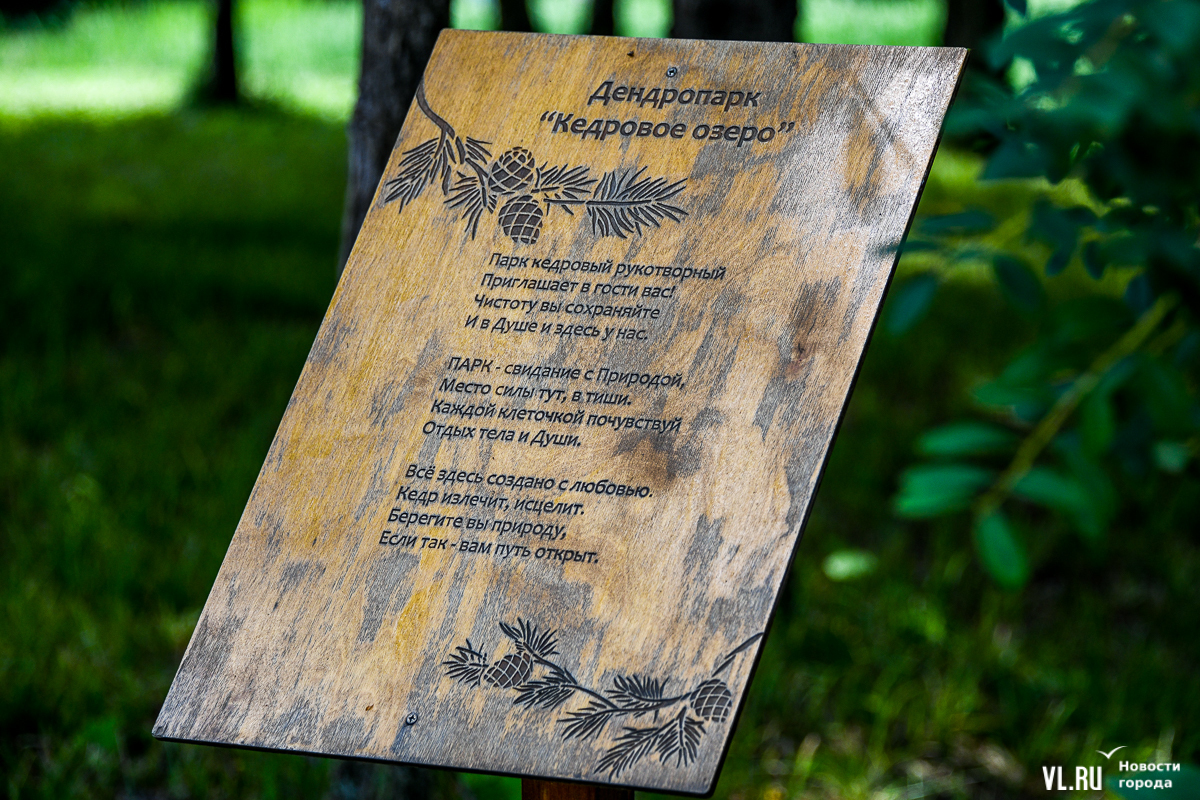 Дендропарк
“Кедровое озеро”
Парк кедровый рукотворный
Приглашает в гости вас!
Чистоту вы сохраняйте
И в Душе и здесь у нас.
ПАРК - свидание с Природой,
Место силы тут, в тиши.
Каждой клеточкой почувствуй
Отдых тела и Души.
Всё здесь создано с любовью.
Кедр излечит, исцелит.
Берегите вы природу,
Если так - вам путь открыт.
VL.RU Новости
города